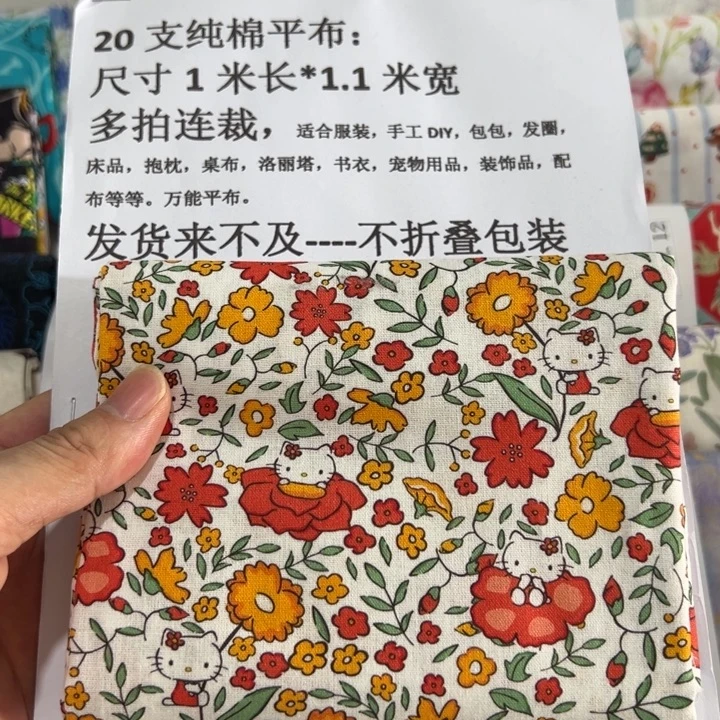 20 支纯棉平布：
尺寸 1 米长*1.1 米宽
多拍连裁，适合服装，手工 DIY，包包，发圈，
床品，抱枕，桌布，洛丽塔，书衣，宠物用品，装饰品，配
布等等。万能平布。
发货来不及----不折叠包装